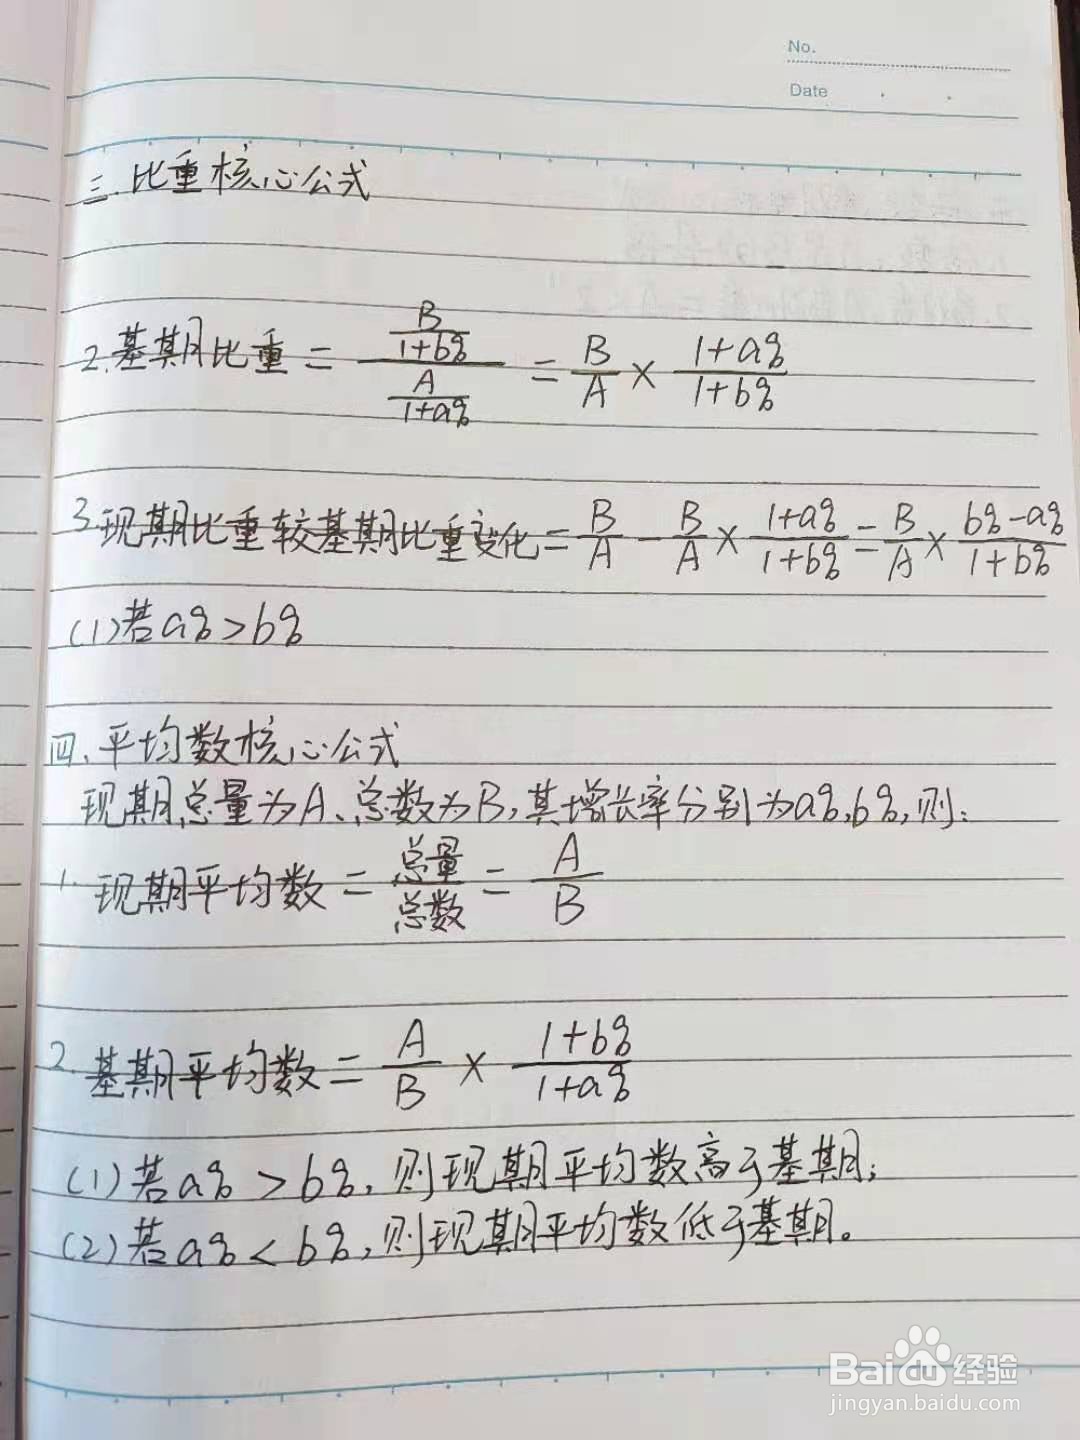 No.
Date
三.比重核心公式
2.基期比重 = (B/(1+b%))/(A/(1+a%)) = B/A × (1+a%)/(1+b%)
3.现期比重较基期比重变化 = B/A - B/A × (1+a%)/(1+b%) = B/A × (b%-a%)/(1+b%)
(1)若a%>b%
四、平均数核心公式
现期总量为A、总数为B,其增长率分别为a%,b%,则:
1.现期平均数 = 总量/总数 = A/B
2.基期平均数 = A/B × (1+b%)/(1+a%)
(1)若a%>b%,则现期平均数高于基期;
(2)若a%<b%,则现期平均数低于基期。
Baidu经验
jingyan.baidu.com